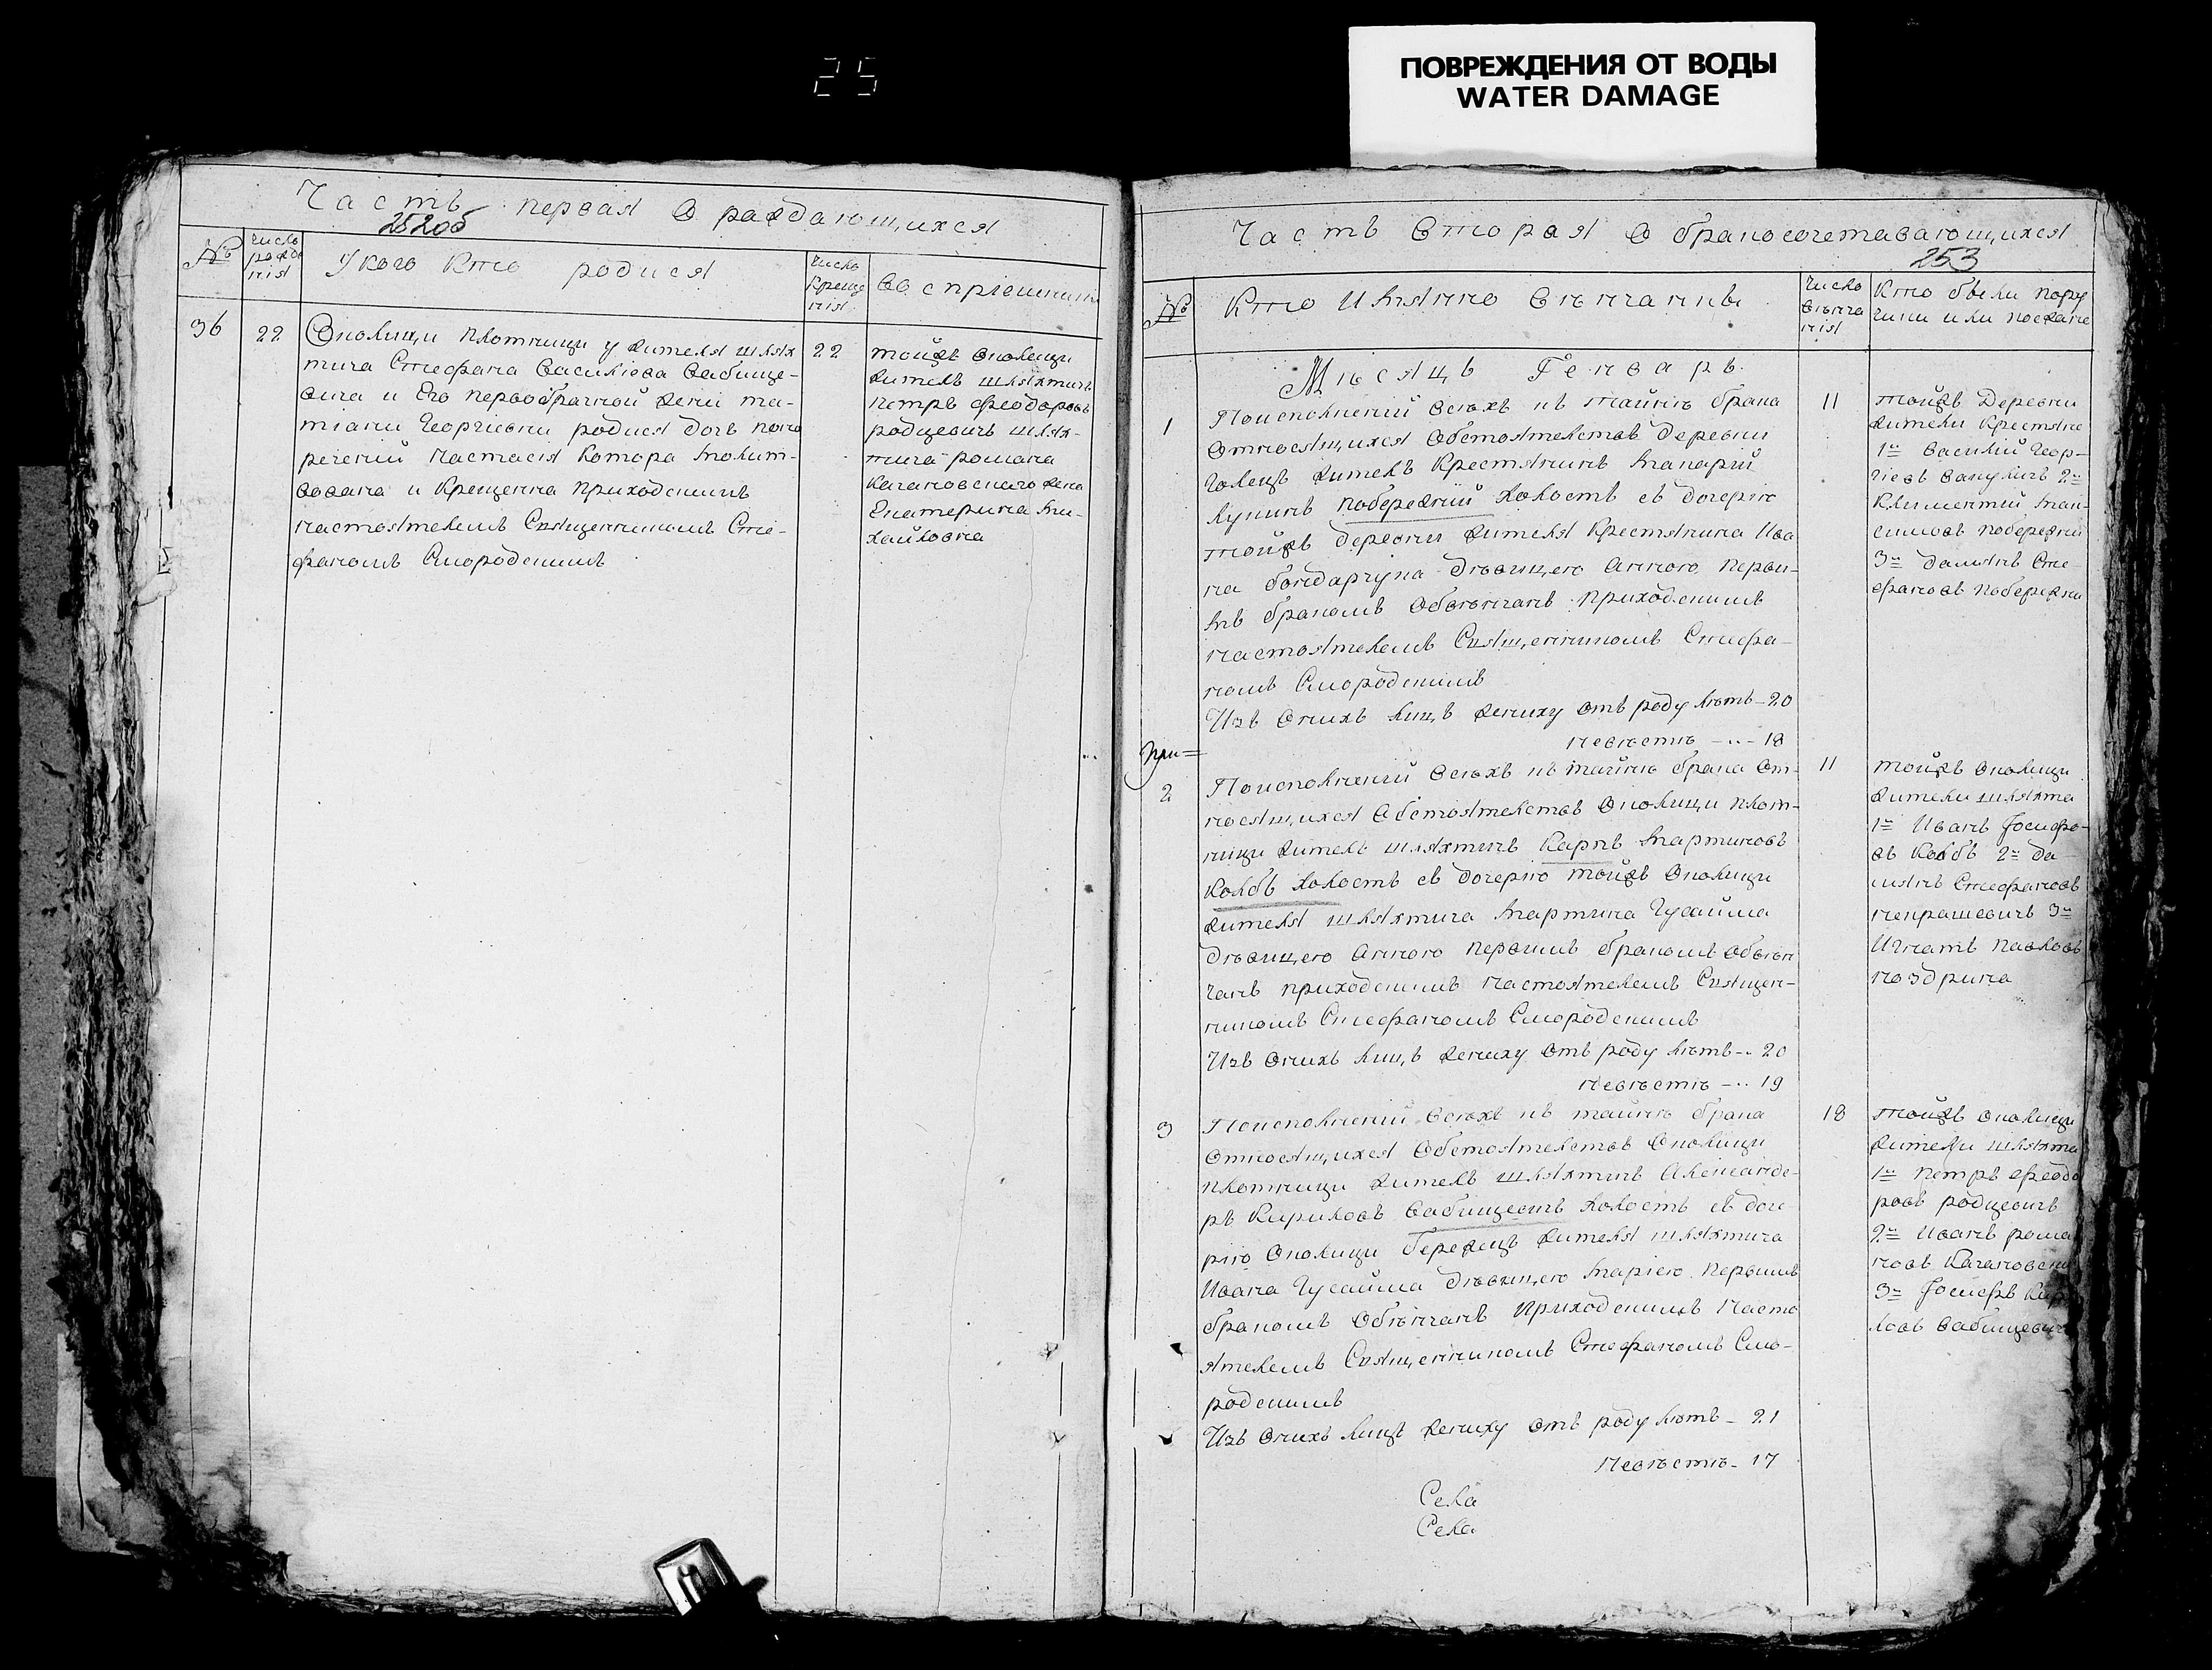 25
ПОВРЕЖДЕНИЯ ОТ ВОДЫ
WATER DAMAGE
Часть первая О раждающихся
252об
№
число рожденія
У кого кто родися
число крещенія
Воспріемники
36
22
Околици Плотници у жителя шляхтича Стефана Василіева Вабище-
вича и Его первобрачной жени та-
тіани Георгіевни родися дочь наго
реченій Настасія Котора молит-
вована и Крещенна приходскимъ
настоятелемъ Священникомъ Сте-
фаномъ Смородскимъ
22
тойжъ Околици
жителъ шляхтичъ
петръ феодоровъ
родцевичъ шлях-
тича романа
Качановскаго жена
Екатерина Ми-
хайловна
Часть Вторая О бракосочетавающихся
253
№
Кто Имянно Вѣнчанны
число Вѣнчанія
Кто были пору
чики или поезжане
Мѣсяцъ Генваръ
1
Поисполненій всѣхъ къ тайнѣ брака
Относящихся Обстоятелствъ деревни
Голецъ жителъ Крестянинъ Макарій
Лукинъ Побережній Холостъ съ дочерию
тойжъ деревни жителя Крестянина Ива
на бондарчука дѣвицею Анною перви-
мъ бракомъ Обвѣнчанъ приходскимъ
Настоятелемъ Священникомъ Стефа-
номъ Смородскимъ
Изъ Онихъ лицъ жениху отъ роду лѣтъ-20
Невѣстѣ - 18
11
тойжъ Деревни
жители Крестяне
1й Василій Геор-
гіевъ 2й
Климентий Мак-
симовъ побережни
3й Дамянъ Сте-
фановъ побережни
При=
2
Поисполненій всѣхъ къ тайнѣ брака От-
носящихся Обстоятелствъ Околици плот-
ници жителъ шляхтичъ Карпъ Мартиновъ
Колбъ Холостъ съ дочерию тойжъ Околици
жителя шляхтича Мартина Гусайма
дѣвицею Анною первимъ бракомъ Обвѣн
чанъ приходскимъ Настоятелемъ Священ-
никомъ Стефаномъ Смородскимъ
Изъ Онихъ лицъ жениху отъ роду лѣтъ-- 20
Невѣстѣ - 19
11
тойжъ Околици
жители шляхта
1й Иванъ Іосифо-
въ Колбъ 2й Да-
мянъ Стефановъ
некрашевичъ 3й
Игнатъ павловъ
ноздрина
3
Поисполненій всѣхъ къ тайнѣ брака
Относящихся Обстоятелствъ Околици
плотници жителъ шляхтичъ Александе-
ръ Кириловъ Вабищевичъ Холостъ съ доче
рию Околици Бережцъ жителя шляхтича
Ивана Гусайма дѣвицею Маріею первимъ
бракомъ Обвѣнчанъ Приходскимъ Насто
ятелемъ Священникомъ Стефаномъ Смо-
родскимъ
Изъ Онихъ лицъ жениху отъ роду лѣтъ- 21
Невѣстѣ- 17
18
тойжъ Околици
жители шляхта
1й петръ феодо
ровъ родцевичъ
2й Иванъ рома
новъ Качановски
3й Іосифъ Кири
ловъ Вабищевичъ
Села
Села